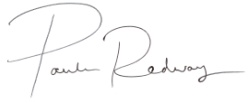 Paula Redway